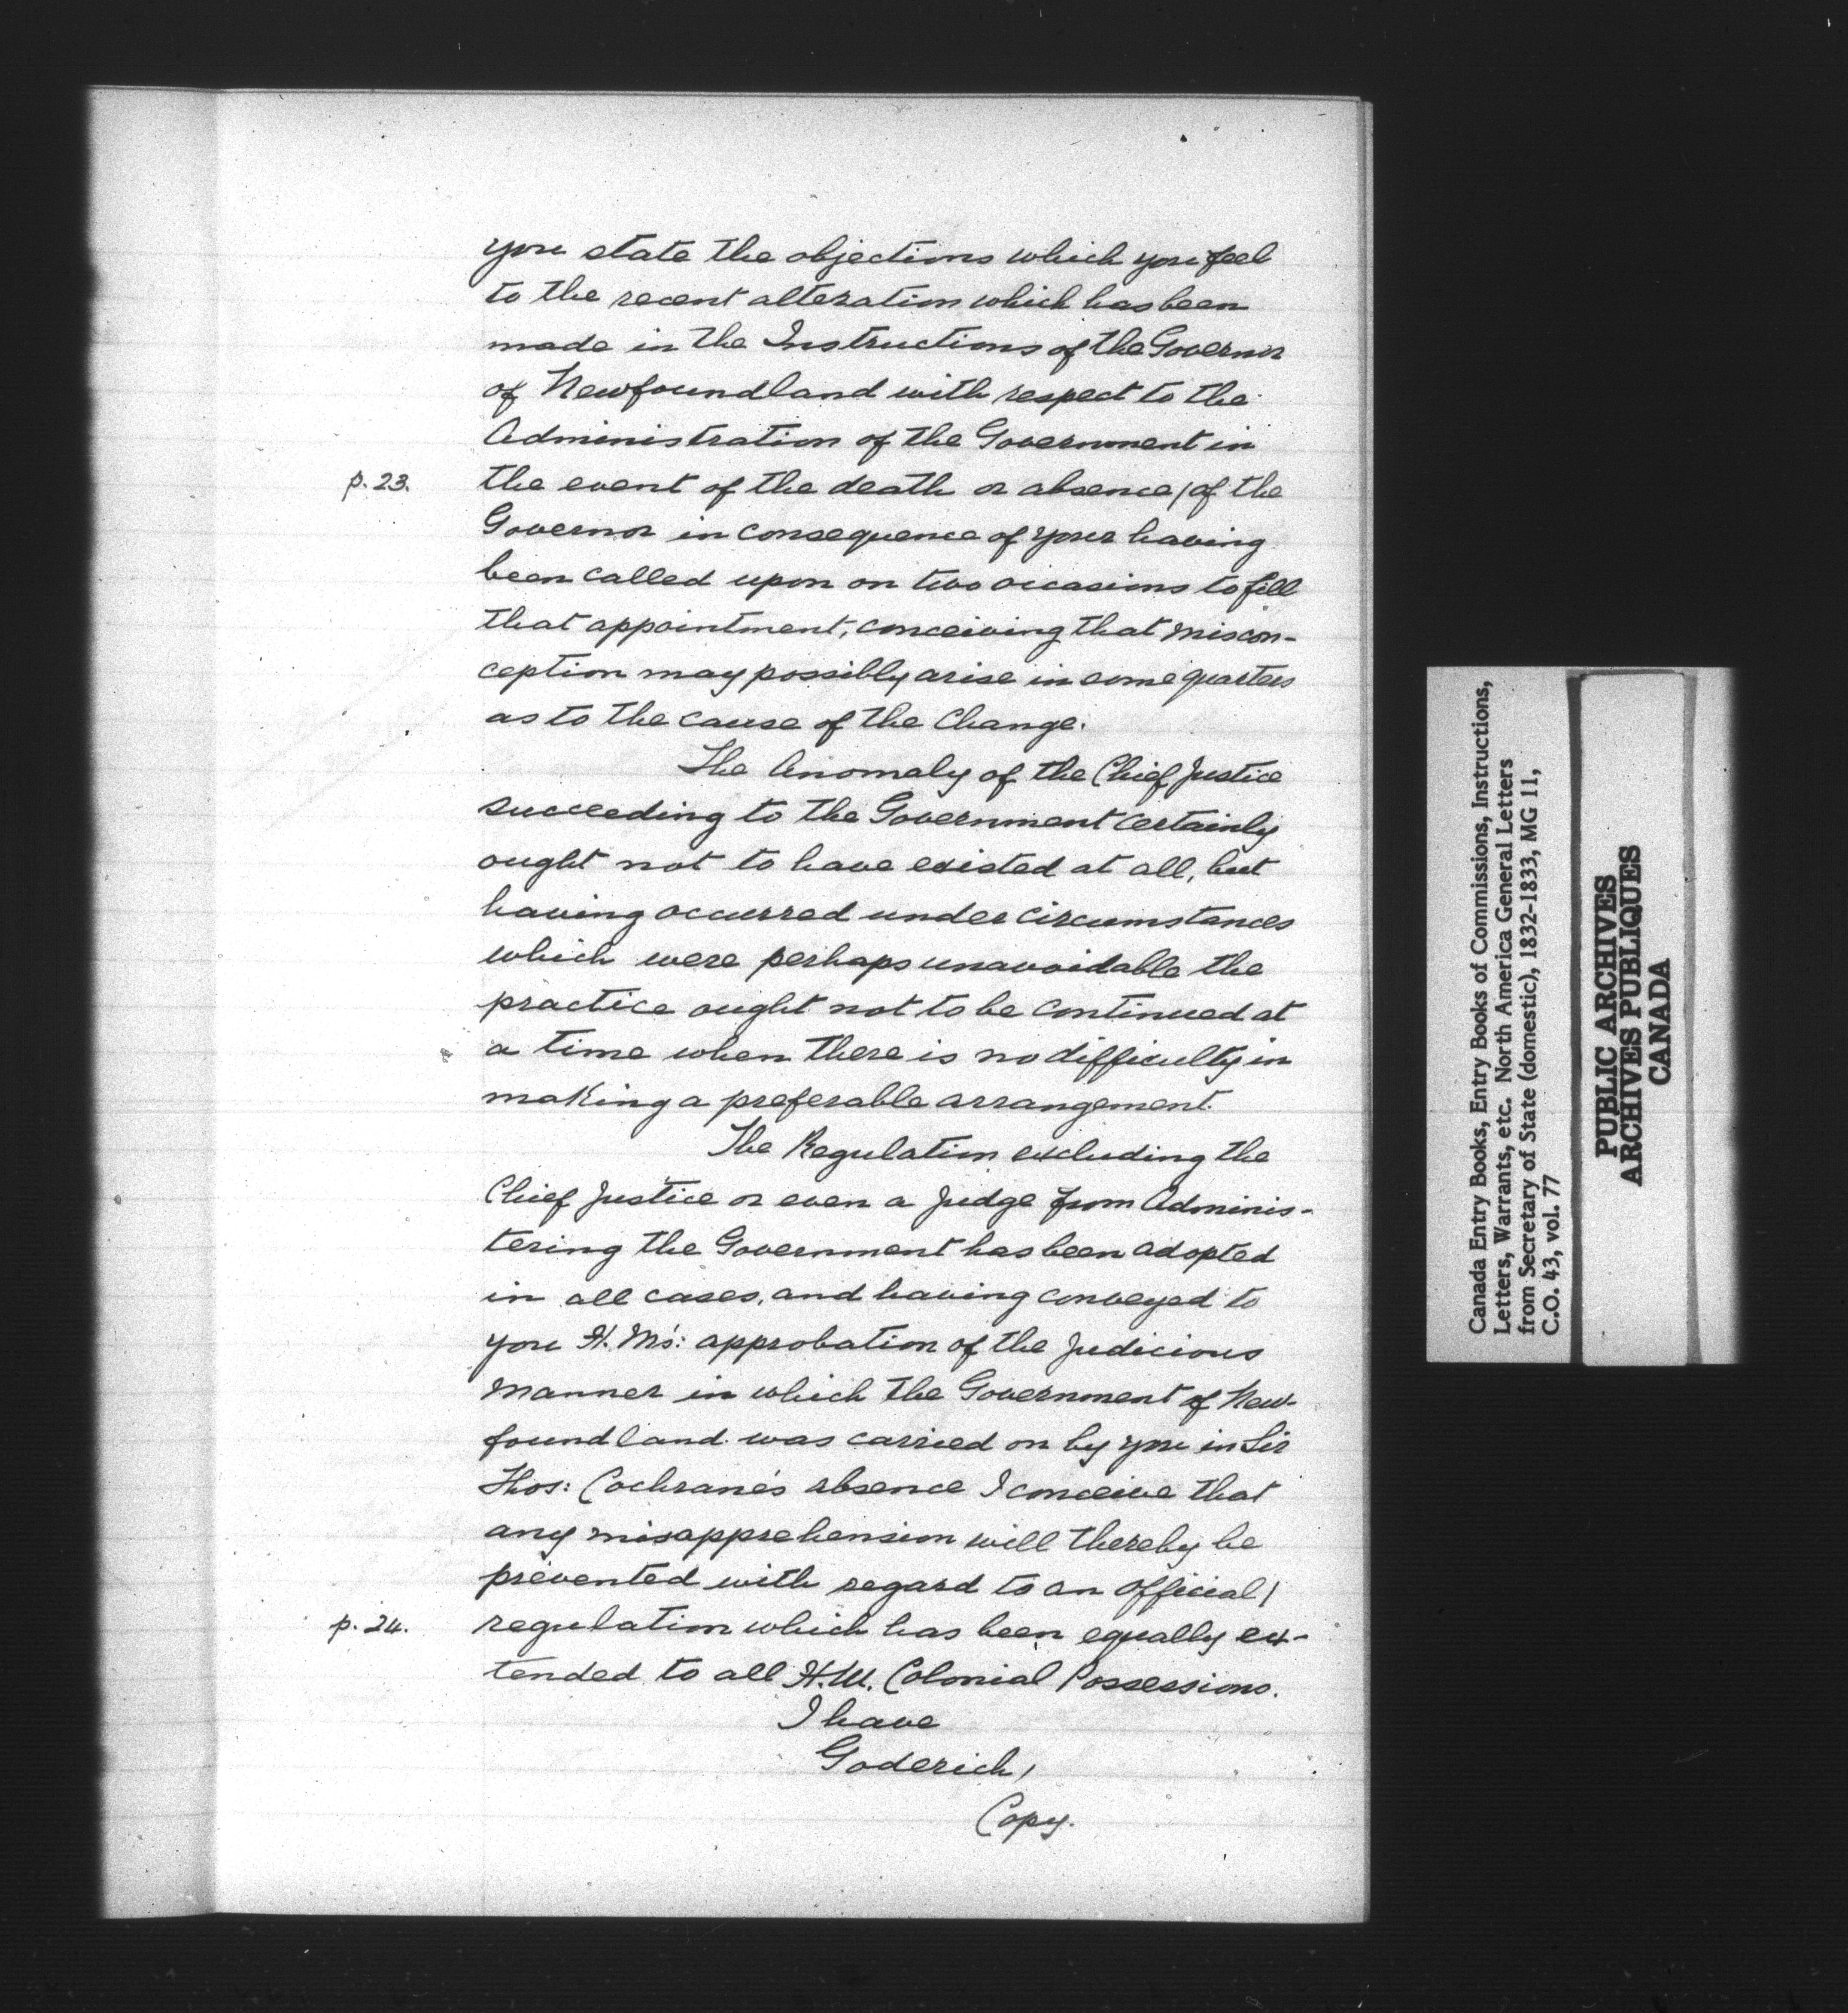 you state the objections which you feel
to the recent alteration which has been
made in the Instructions of the Governor
of Newfoundland with respect to the
Administration of the Government in
p. 23. the event of the death or absence / of the
Governor in consequence of your having
been called upon on two occasions to fill
that appointment, conceiving that miscon-
ception may possibly arise in some quarters
as to the cause of the Change.
The Anomaly of the Chief Justice
succeeding to the Government certainly
ought not to have existed at all, but
having occurred under circumstances
which were perhaps unavoidable the
practice ought not to be continued at
a time when there is no difficulty in
making a preferable arrangement.
The Regulation excluding the
Chief Justice or even a Judge from Adminis-
tering the Government has been adopted
in all cases, and having conveyed to
you H. M's: approbation of the Judicious
manner in which the Government of New-
foundland was carried on by you in Sir
Thos: Cochrane's absence I conceive that
any misapprehension will thereby be
prevented with regard to an Official /
p. 24. regulation which has been equally ex-
tended to all H.M. Colonial Possessions.
I have
Goderich,
Copy.
Canada Entry Books, Entry Books of Commissions, Instructions,
Letters, Warrants, etc. North America General Letters
from Secretary of State (domestic), 1832-1833, MG 11,
C.O. 43, vol. 77
PUBLIC ARCHIVES
ARCHIVES PUBLIQUES
CANADA